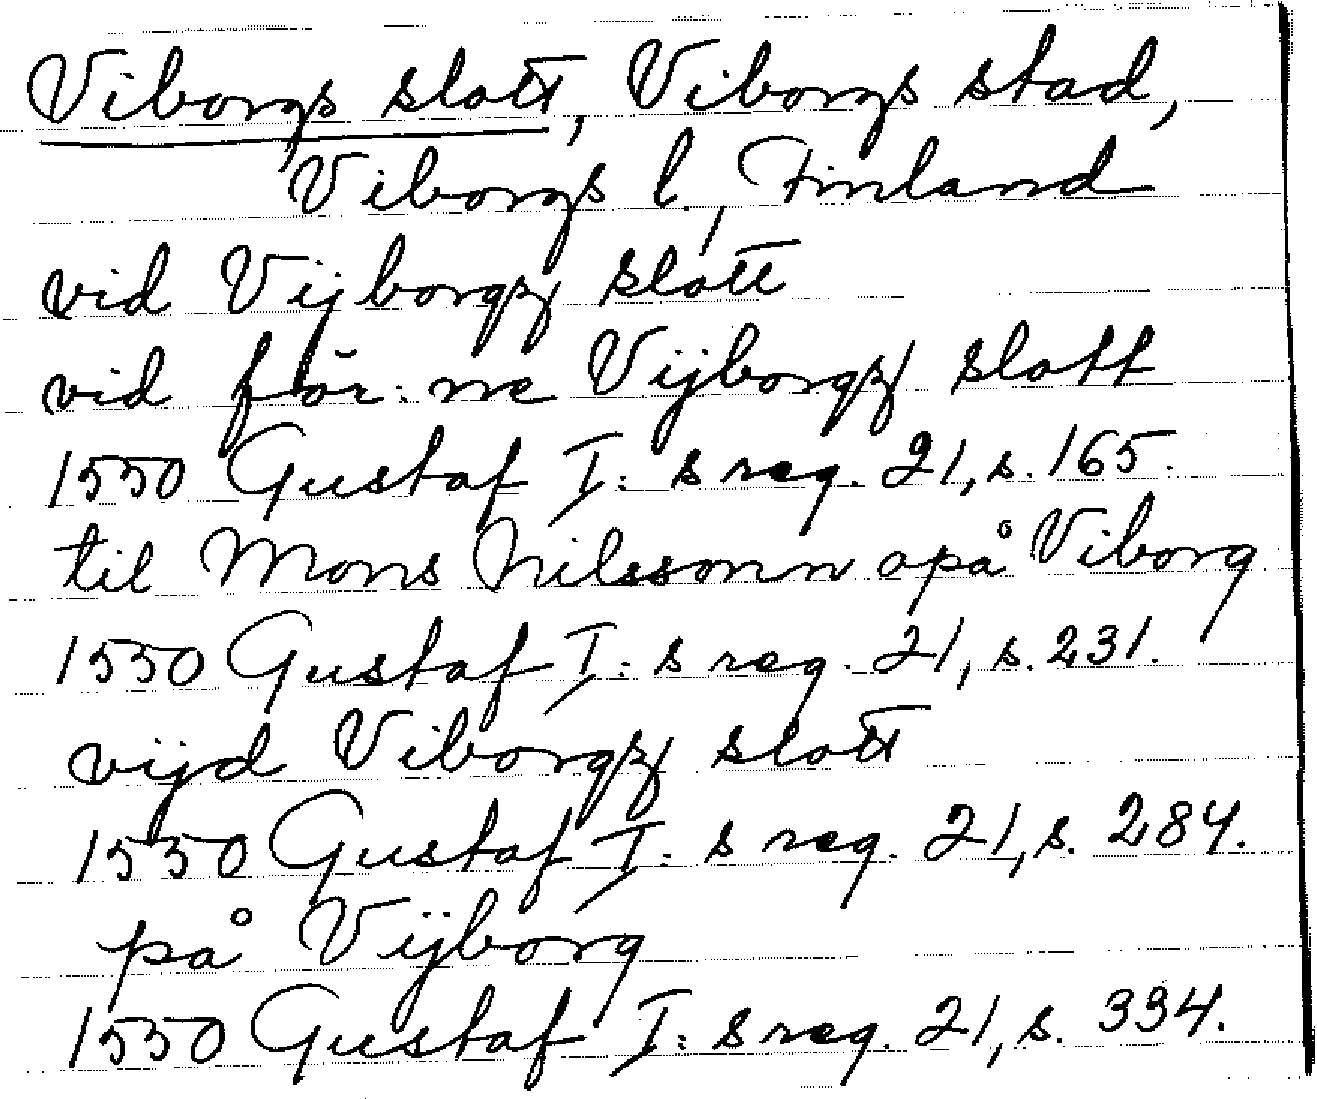 Viborgs slott, Viborgs stad,
Viborgs l., Finland
vid Vijborgz slott
vid för:ne Vijborgz slott
1550 Gustaf I:s reg. 21, s. 165.
til Mons Nilssonn opå Viborg
1550 Gustaf I:s reg. 21, s. 231.
vijd Viborgz slott
1550 Gustaf I:s reg. 21, s. 284.
på Vijborg
1550 Gustaf I:s reg. 21, s. 334.